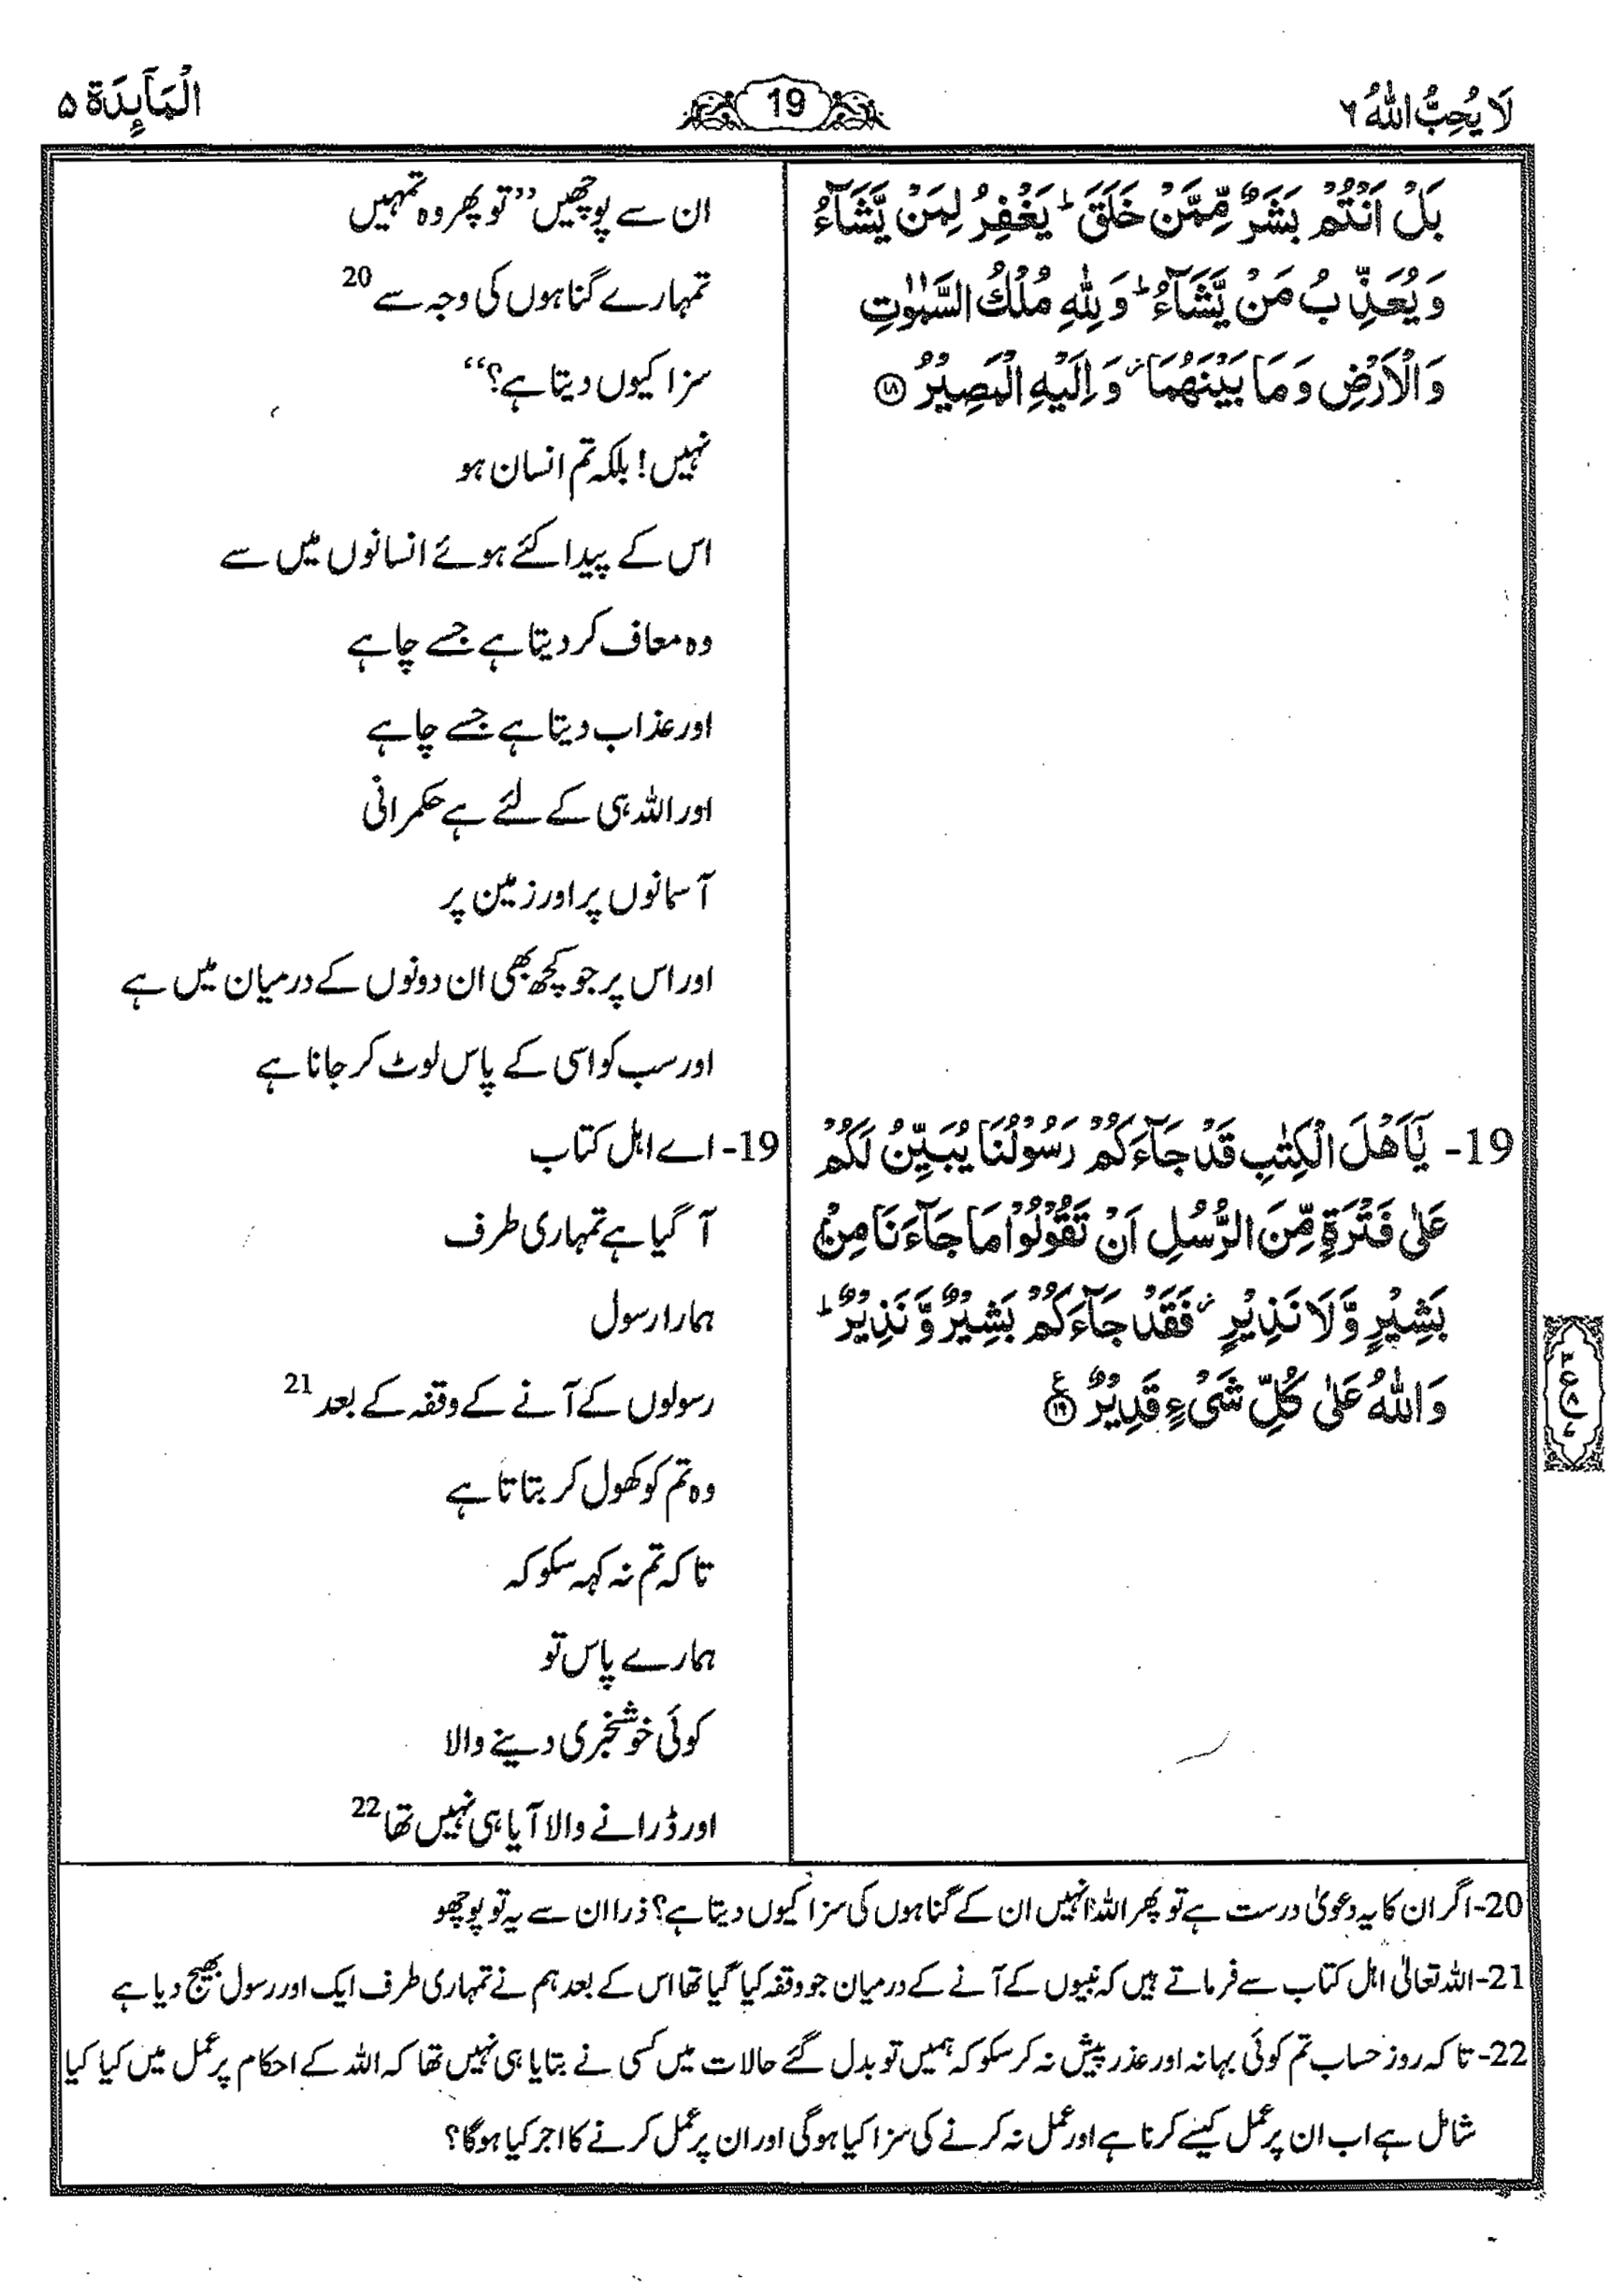 لَا يُحِبُّ اللّٰهُ ٦
19
الْمَآئِدَة ۵
بَلْ اَنْتُمْ بَشَرٌ مِّمَّنْ خَلَقَ ؕ يَغْفِرُ لِمَنْ يَّشَآءُ
وَيُعَذِّبُ مَنْ يَّشَآءُ ؕ وَلِلّٰهِ مُلْكُ السَّمٰوٰتِ
وَالْاَرْضِ وَمَا بَيْنَهُمَا ؗ وَاِلَيْهِ الْمَصِيْرُ ﴿۱۸﴾
19- يٰۤاَهْلَ الْكِتٰبِ قَدْ جَآءَكُمْ رَسُوْلُنَا يُبَيِّنُ لَكُمْ
عَلٰى فَتْرَةٍ مِّنَ الرُّسُلِ اَنْ تَقُوْلُوْا مَا جَآءَنَا مِنْۢ
بَشِيْرٍ وَّلَا نَذِيْرٍ ؗ فَقَدْ جَآءَكُمْ بَشِيْرٌ وَّنَذِيْرٌ ؕ
وَاللّٰهُ عَلٰى كُلِّ شَىْءٍ قَدِيْرٌ ﴿۱۹﴾ ع
ان سے پوچھیں ’’تو پھر وہ تمہیں
تمہارے گناہوں کی وجہ سے 20
سزا کیوں دیتا ہے؟‘‘
نہیں! بلکہ تم انسان ہو
اس کے پیدا کئے ہوئے انسانوں میں سے
وہ معاف کر دیتا ہے جسے چاہے
اور عذاب دیتا ہے جسے چاہے
اور اللہ ہی کے لئے ہے حکمرانی
آسمانوں پر اور زمین پر
اور اس پر جو کچھ بھی ان دونوں کے درمیان میں ہے
اور سب کو اسی کے پاس لوٹ کر جانا ہے
19- اے اہل کتاب
آ گیا ہے تمہاری طرف
ہمارا رسول
رسولوں کے آنے کے وقفہ کے بعد 21
وہ تم کو کھول کر بتاتا ہے
تاکہ تم نہ کہہ سکو کہ
ہمارے پاس تو
کوئی خوشخبری دینے والا
اور ڈرانے والا آیا ہی نہیں تھا 22
20- اگر ان کا یہ دعویٰ درست ہے تو پھر اللہ انہیں ان کے گناہوں کی سزا کیوں دیتا ہے؟ ذرا ان سے یہ تو پوچھو
21- اللہ تعالیٰ اہل کتاب سے فرماتے ہیں کہ نبیوں کے آنے کے درمیان جو وقفہ کیا گیا تھا اس کے بعد ہم نے تمہاری طرف ایک اور رسول بھیج دیا ہے
22- تاکہ روز حساب تم کوئی بہانہ اور عذر پیش نہ کر سکو کہ ہمیں تو بدل گئے حالات میں کسی نے بتایا ہی نہیں تھا کہ اللہ کے احکام پر عمل میں کیا کیا
شامل ہے اب ان پر عمل کیسے کرنا ہے اور عمل نہ کرنے کی سزا کیا ہوگی اور ان پر عمل کرنے کا اجر کیا ہوگا؟